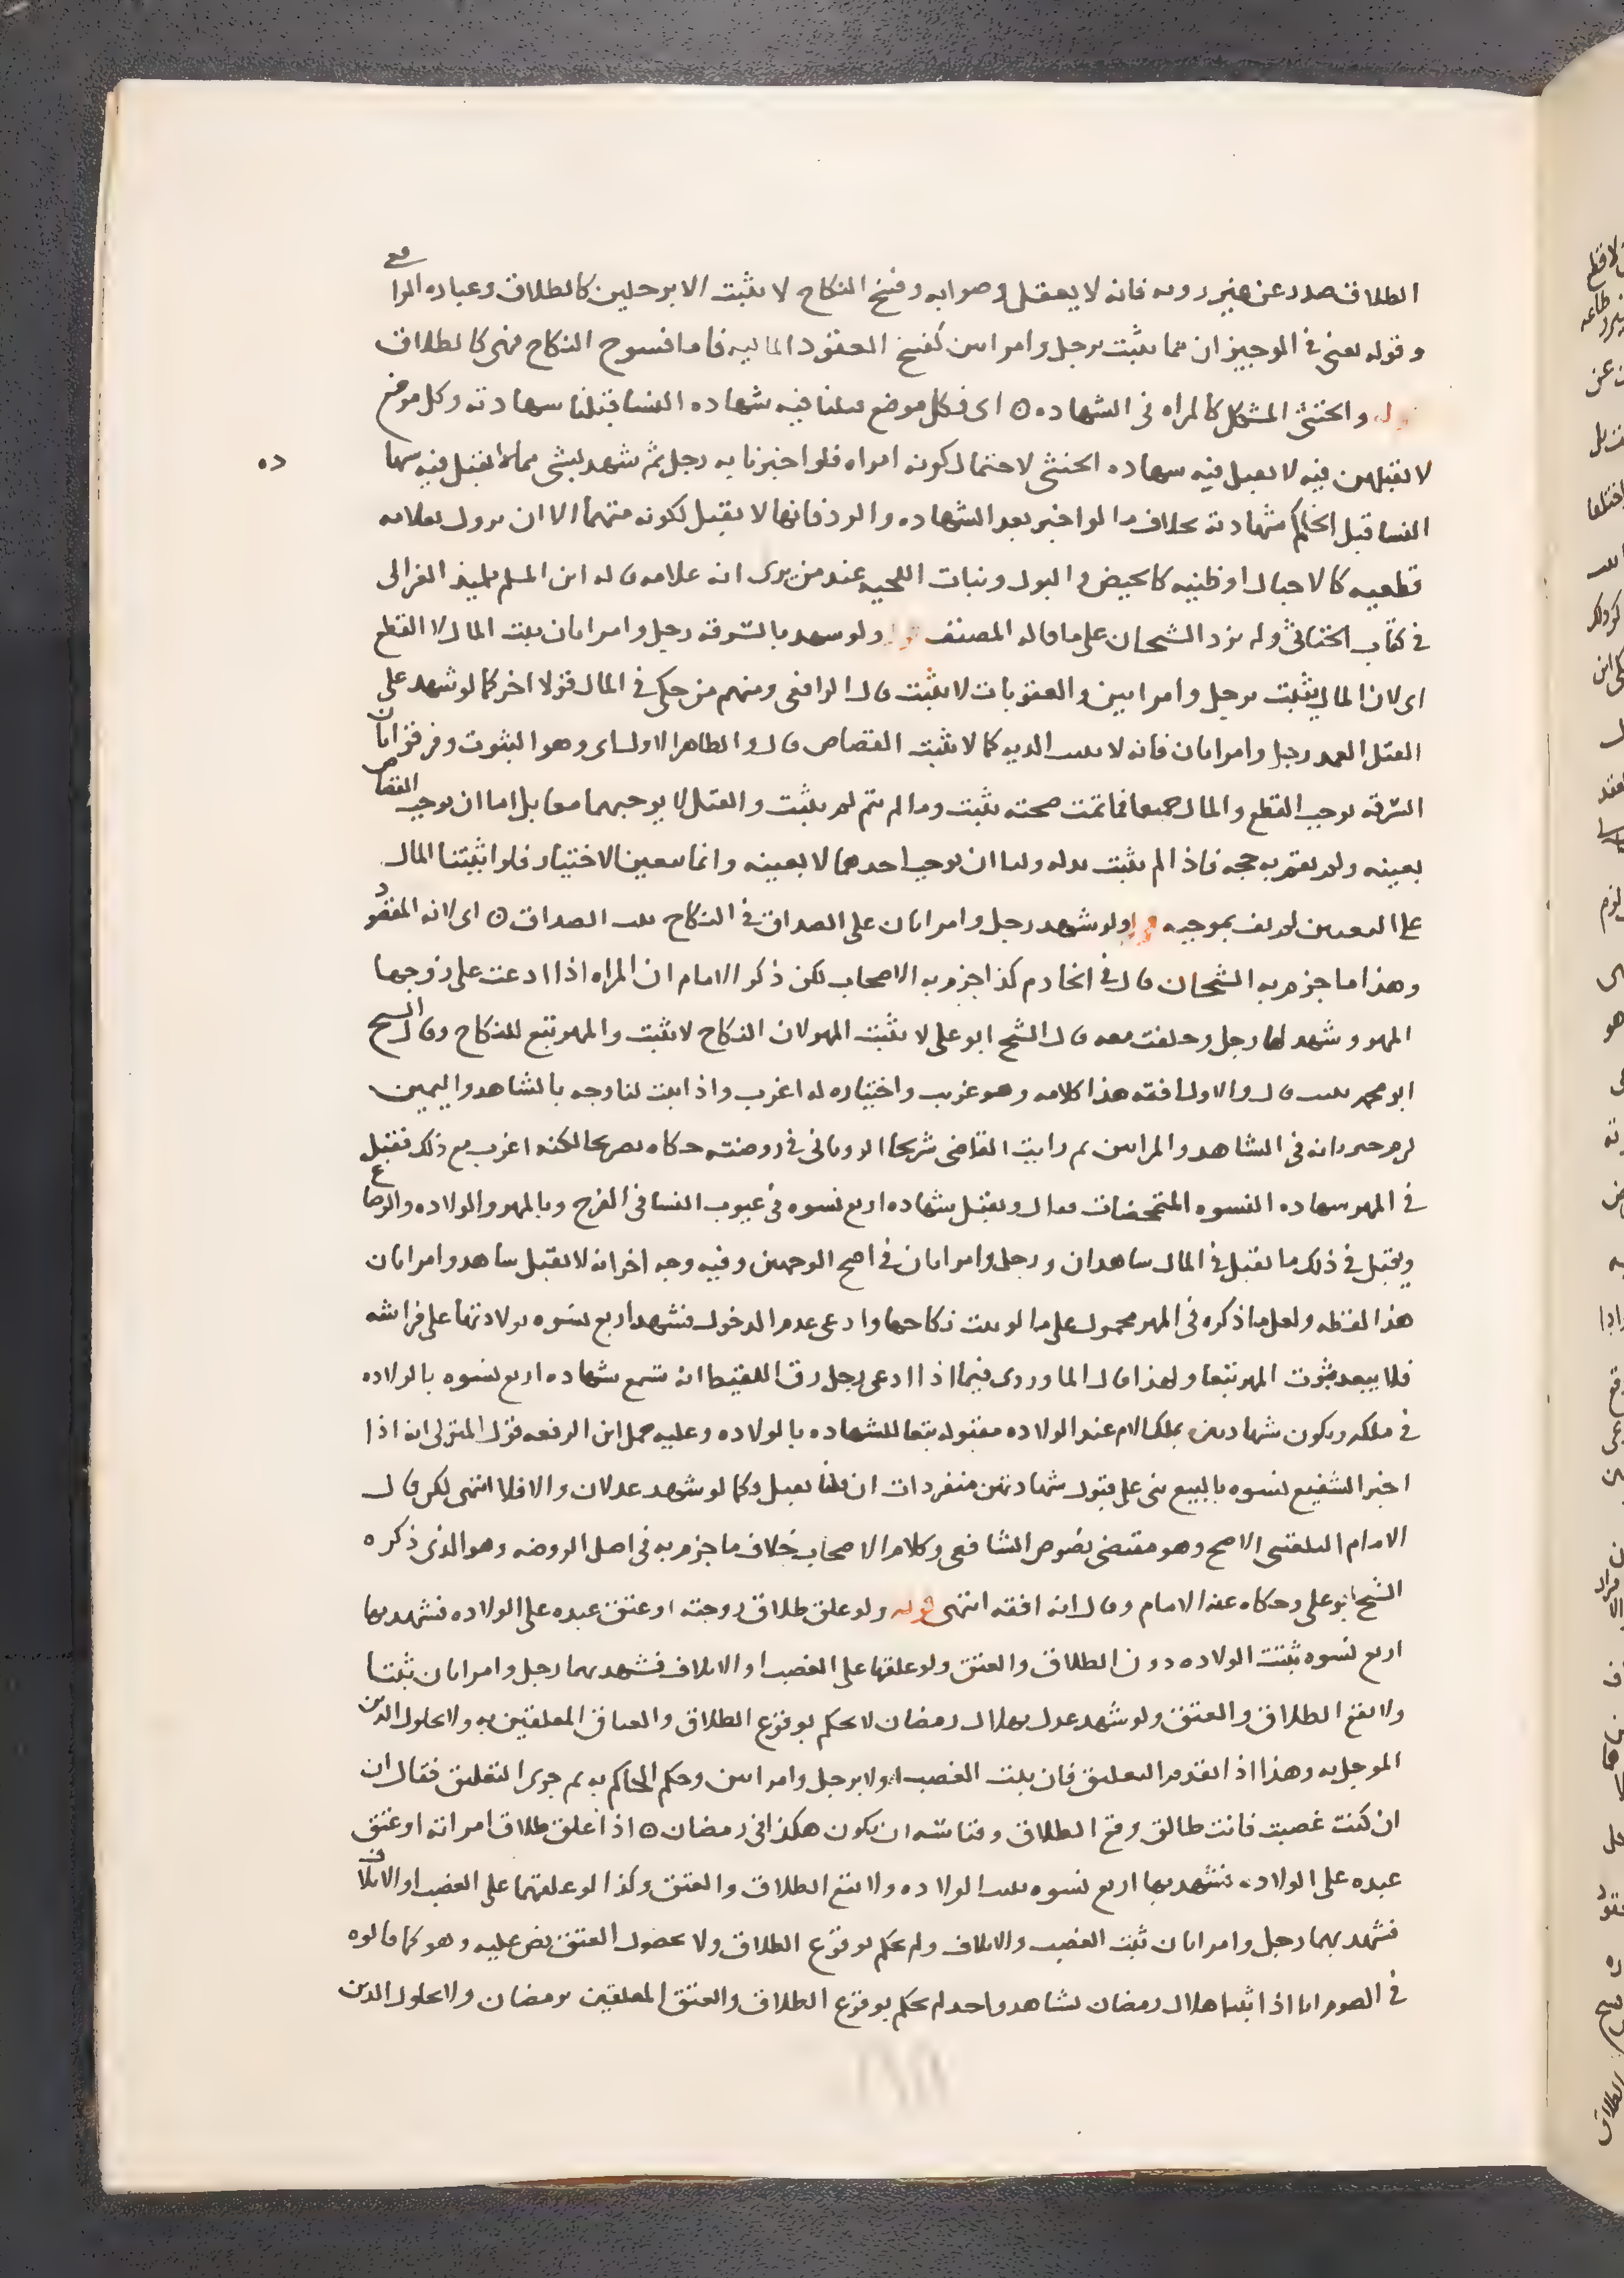 الطلاق صدر عن غير رويه فانه لا يعقل وصوابه وفسخ النكاح لا يثبت الا برجلين كالطلاق وعباره الرافعي
وقوله يعني في الوجيز ان مما يثبت برجل وامراتين كفسخ العقود الماليه فاما فسوخ النكاح فهي كالطلاق
قوله والخنثى المشكل كالمراه في الشهاده ه اى فكل موضع قبلنا فيه شهاده النسا قبلنا شهادته وكل موضع
لا تقبلهن فيه لا يقبل فيه شهاده الخنثى لاحتمال كونه امراه فلو اخبرنا به رجل ثم شهد بشي مما لا تقبل فيه شهاده
النسا قبل الحاكم شهادته بخلاف ما لو اخبر بعد الشهاده والرد فانها لا يقبل لكونه متهما الا ان يزول بعلامه
قطعيه كالاحبال او ظنيه كالحيض والبول ونبات اللحيه عند من يرى انه علامه قاله ابن المسلم تلميذ الغزالى
في كتاب الخناثى ولم يزد الشيخان على ما قاله المصنف قوله ولو شهد بالسرقه رجل وامراتان يثبت المال لا القطع
اى لان المال يثبت برجل وامراتين والعقوبات لا تثبت قال الرافعي ومنهم من حكى في المال قولا اخر كما لو شهد على
القتل العمد رجل وامراتان فانه لا يثبت الديه كما لا يثبت القصاص قال والظاهر الاول اى وهو الثبوت وفرقوا بان
السرقه توجب القطع والمال جميعا فما تمت صحته يثبت وما لم يتم لم يثبت والقتل لا يوجبهما معا بل اما ان يوجب القصاص
بعينه ولم يقم به حجه فاذا لم يثبت بدله واما ان يوجب احدهما لا بعينه وانما يتعين الاختيار فلو اثبتنا المال
على التعيين لم نف بموجبه قوله ولو شهد رجل وامراتان على الصداق في النكاح يثبت الصداق ه اى لانه المقصود
وهذا ما جزم به الشيخان قال في الخادم كذا جزم به الاصحاب لكن ذكر الامام ان المراه اذا ادعت على زوجها
المهر وشهد لها رجل وحلفت معه قال الشيخ ابو على لا يثبت المهر لان النكاح لا يثبت والمهر تبع للنكاح وقال الشيخ
ابو محمد يثبت قال والاول افقه هذا كلامه وهو غريب واختياره له اغرب واذا ثبت لنا وجه بالشاهد واليمين
لزم جريانه في الشاهد والمراتين ثم رايت القاضى شريحا الرويانى في روضته حكاه تصريحا لكنه اغرب مع ذلك فقبل
في المهر شهاده النسوه المتمحضات فقال ويقبل شهاده اربع نسوه في عيوب النسا في الفرج وبالمهر والولاده والرضاع
ويقبل في ذلك ما يقبل في المال شاهدان ورجل وامراتان في اصح الوجهين وفيه وجه اخر انه لا يقبل شاهد وامراتان
هذا لفظه ولعل ما ذكره في المهر محمول على ما لو ثبت نكاحها وادعى عدم الدخول فشهد اربع نسوه بولادتها على فراشه
فلا يبعد ثبوت المهر تبعا ولهذا قال الماوردى فيما اذا ادعى رجل رق اللقيط انه تسمع شهاده اربع نسوه بالولاده
في ملكه ويكون شهادتهن بملك الام عند الولاده مقبوله تبعا للشهاده بالولاده وعليه حمل ابن الرفعه قول المتولى انه اذا
اخبر الشفيع نسوه بالبيع بنى على قبول شهادتهن منفردات ان قلنا يقبل فكما لو شهد عدلان والا فلا انتهى لكن قال
الامام البلقينى الاصح وهو مقتضى نصوص الشافعى وكلام الاصحاب خلاف ما جزم به في اصل الروضه وهو الذى ذكره
الشيخ ابو على وحكاه عنه الامام وقال انه افقه انتهى قوله ولو علق طلاق زوجته او عتق عبده على الولاده فشهد بها
اربع نسوه ثبتت الولاده دون الطلاق والعتق ولو علقها على الغصب او الاتلاف فشهد بهما رجل وامراتان ثبتا
ولا يقع الطلاق والعتق ولو شهد عدل بهلال رمضان لا يحكم بوقوع الطلاق والعتاق المعلقين به ولا بحلول الدين
الموجل به وهذا اذا تقدم التعليق فان يثبت الغصب اولا برجل وامراتين وحكم الحاكم به ثم جرى التعليق فقال ان
ان كنت غصبت فانت طالق وقع الطلاق وقياسه ان يكون هكذا في رمضان ه اذا علق طلاق امراته او عتق
عبده على الولاده فشهد بها اربع نسوه يثبت الولاده ولا يقع الطلاق والعتق وكذا لو علقهما على الغصب او الاتلاف
فشهد بهما رجل وامراتان ثبت الغصب والاتلاف ولم يحكم بوقوع الطلاق ولا بحصول العتق نص عليه وهو كما قالوه
في الصوم انا اذا اثبتنا هلال رمضان بشاهد واحد لم يحكم بوقوع الطلاق والعتق المعلقين برمضان ولا بحلول الدين